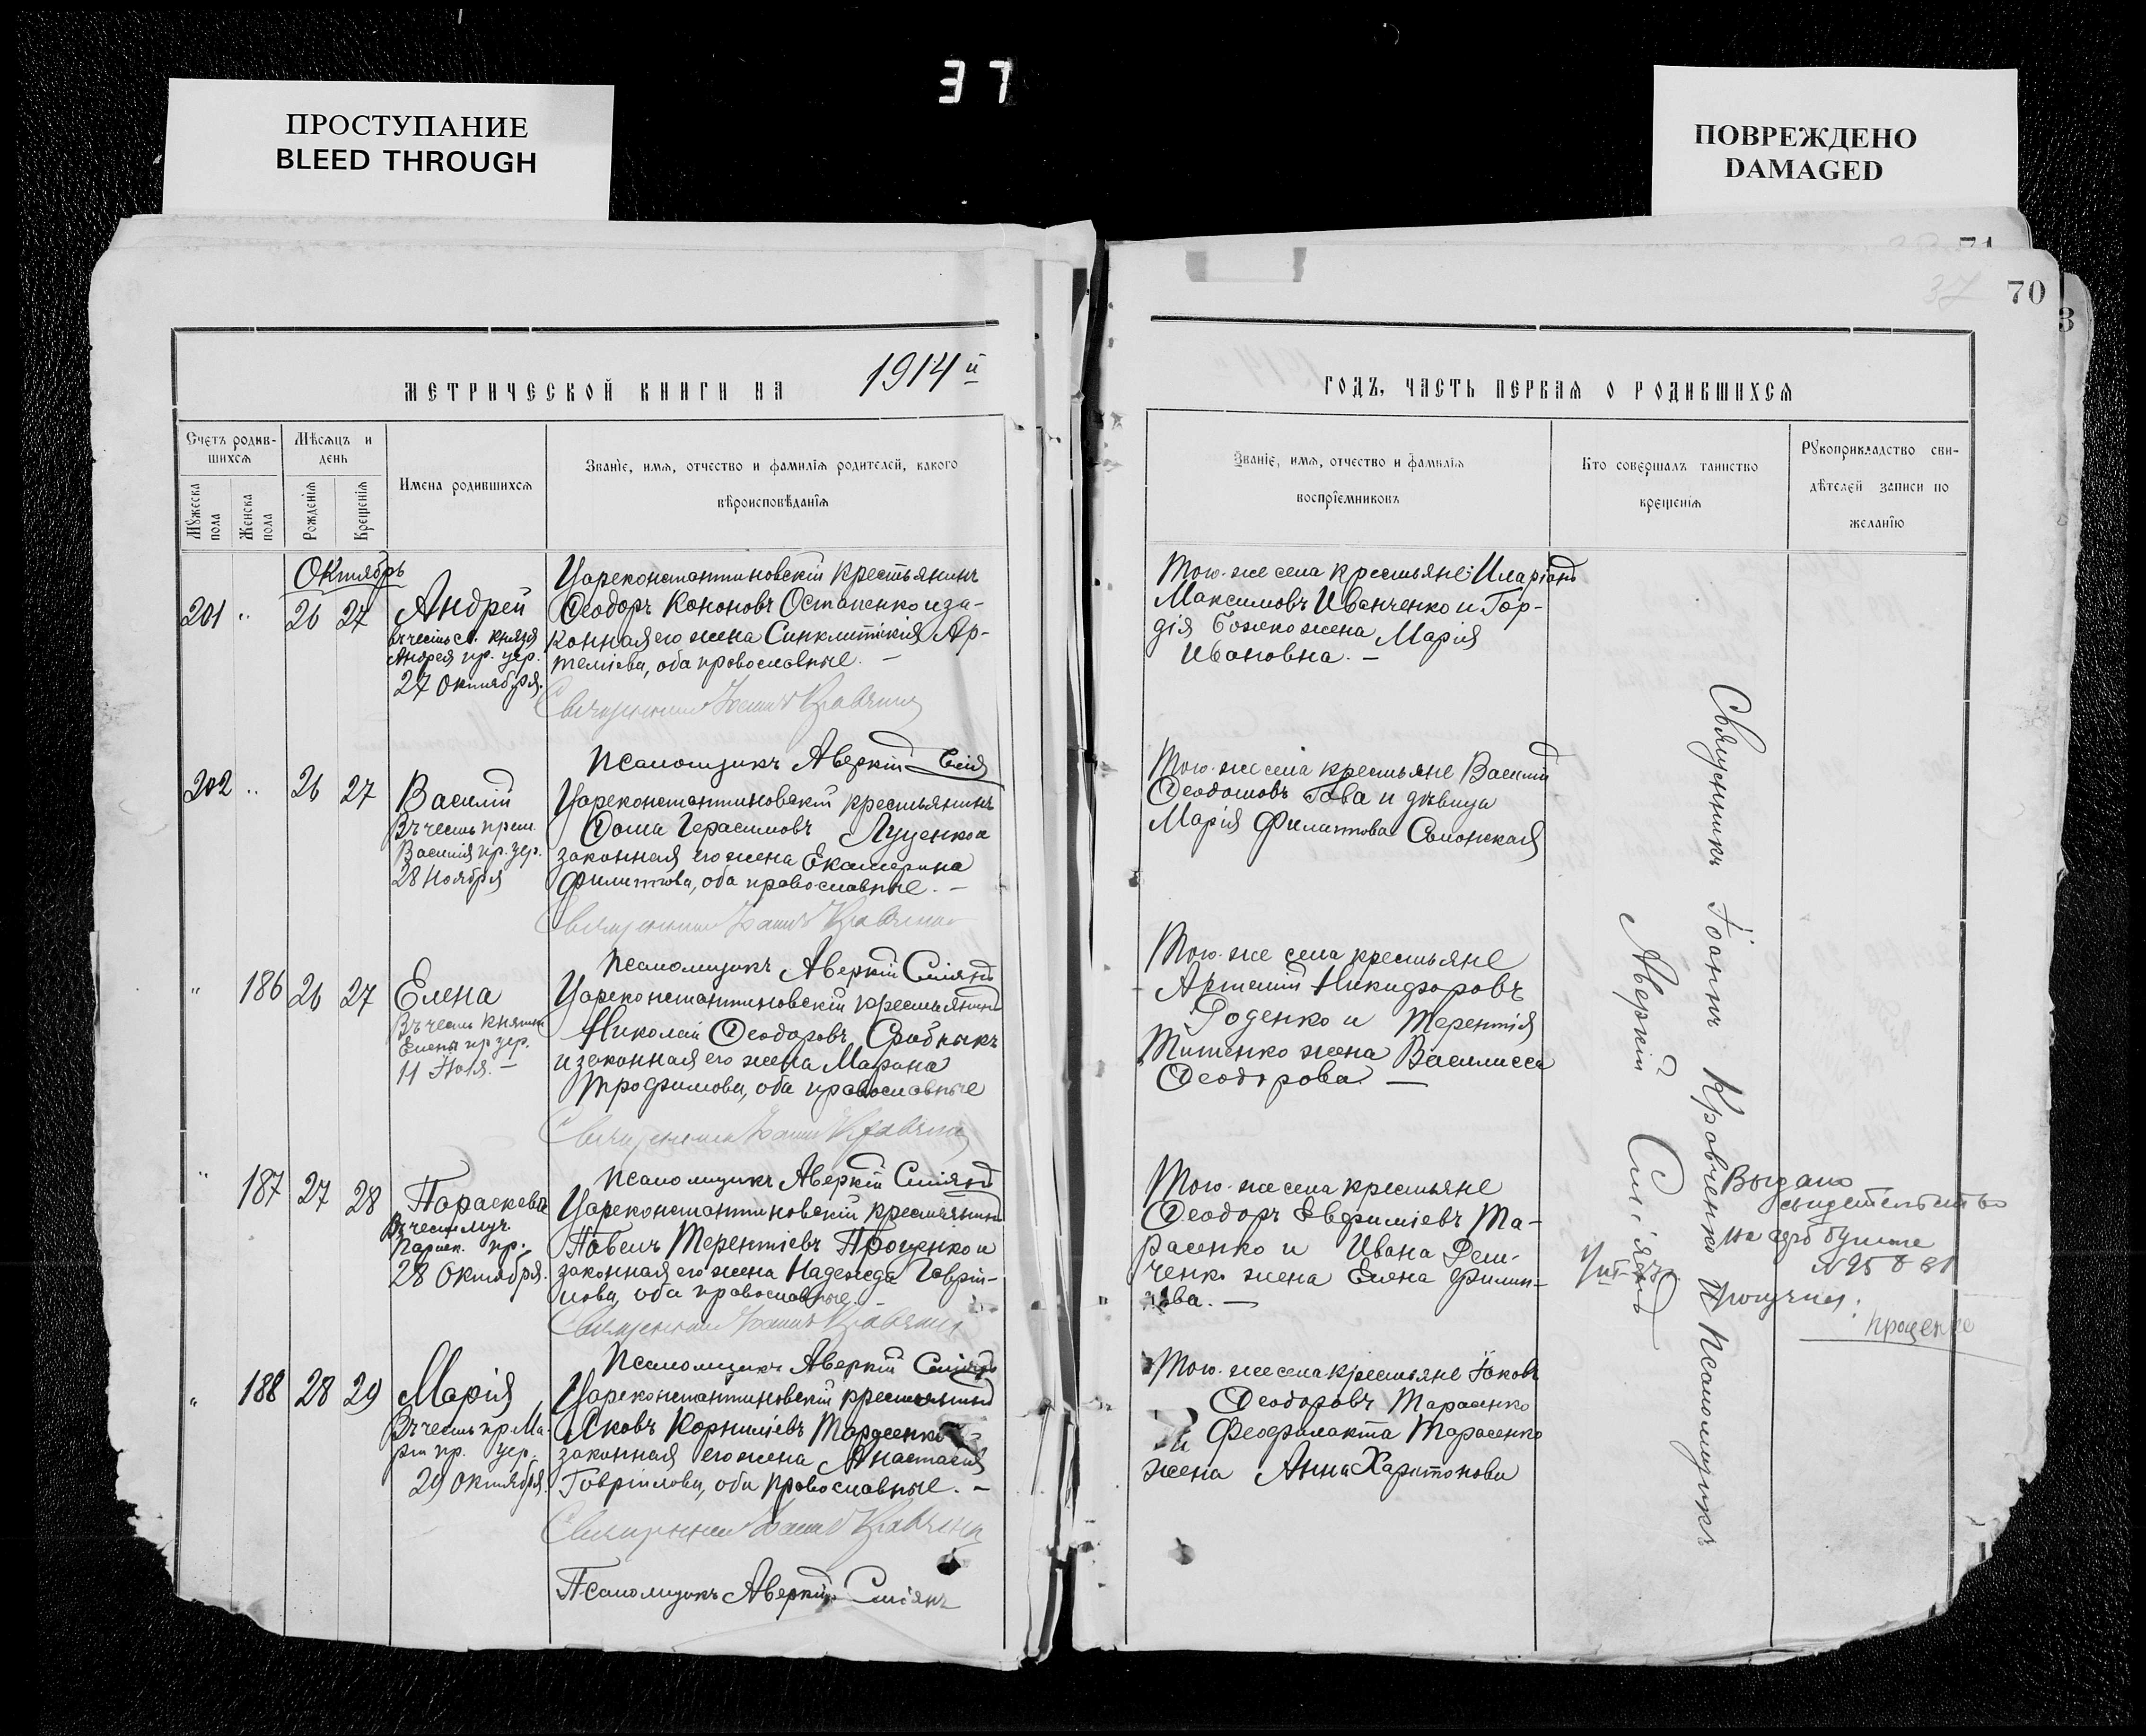 37
ПРОСТУПАНИЕ
BLEED THROUGH
ПОВРЕЖДЕНО
DAMAGED
71
37 70
3
МЕТРИЧЕСКОЙ КНИГИ НА 1914 й
Счетъ родив-
шихся
Мужеска пола
Женска пола
Мѣсяцъ и
день
Рожденія
Крещенія
Имена родившихся
Званіе, имя, отчество и фамилія родителей, какого
вѣроисповѣданія
Октябрь
201 " 26 27
Андрей
въ честь св. князя
Андрея пр. цер.
27 Октября.
Цареконстантиновскій крестьянинъ
Ѳеодоръ Кононовъ Остапенко и за-
конная его жена Синклитікія Ар-
теміева, оба православные. –
Священникъ Іоаннъ Кравченко
Псаломщикъ Аверкій Сміянъ
202 " 26 27
Василій
Въ честь преп.
Василія пр. цер.
28 Ноября
Цареконстантиновскій крестьянинъ
Ѳома Герасимовъ Луценко и
законная его жена Екатерина
Филиппова, оба православные. –
Священникъ Іоаннъ Кравченко
Псаломщикъ Аверкій Сміянъ
" 186 26 27
Елена
Въ честь княгини
Елены пр. цер.
11 Іюля. –
Цареконстантиновскій крестьянинъ
Николай Ѳеодоровъ
и законная его жена Матрона
Трофимова, оба православные
Священникъ Іоаннъ Кравченко
Псаломщикъ Аверкій Сміянъ
" 187 27 28
Параскева
Въ честь муч.
Параск. пр.
28 Октября.
Цареконстантиновскій крестьянинъ
Павелъ Терентіевъ Проценко и
законная его жена Надежда Гаврі-
лова, оба православные. –
Священникъ Іоаннъ Кравченко
Псаломщикъ Аверкій Сміянъ
" 188 28 29
Марія
Въ честь пр. Ма-
ріи пр. цер.
29 Октября.
Цареконстантиновскій крестьянинъ
Яковъ Корниліевъ Тарасенко
законная его жена Анастасія
Гавріилова, оба православные. –
Священникъ Іоаннъ Кравченко
Псаломщикъ Аверкій Сміянъ
ГОДЪ, ЧАСТЬ ПЕРВАЯ О РОДИВШИХСЯ
Званіе, имя, отчество и фамилія
воспріемниковъ
Кто совершалъ таинство
крещенія
Рукоприкладство сви-
дѣтелей записи по
желанію
Того-же села крестьяне: Иларіонъ
Максимовъ Иванченко и Гор-
дія Божко жена Марія
Ивановна. –
Того-же села крестьяне Василій
Ѳеодотовъ Гава и дѣвица
Марія Филиппова
Того-же села крестьяне
Никифоровъ
Роденко и Терентія
Титенко жена Василисса
Ѳеодорова. –
Того-же села крестьяне
Ѳеодоръ Евфиміевъ Та-
расенко и Ивана Дем-
ченко жена Елена Филип-
пова. –
Того-же села крестьяне Іаковъ
Ѳеодоровъ Тарасенко
и Феофилакта Тарасенко
жена Анна Харитонова
Священникъ Іоаннъ Кравченко и Псаломщикъ
Аверкій Сміянъ
Выдано
свидетельство
на
№ 25881
Получил:
Проценко